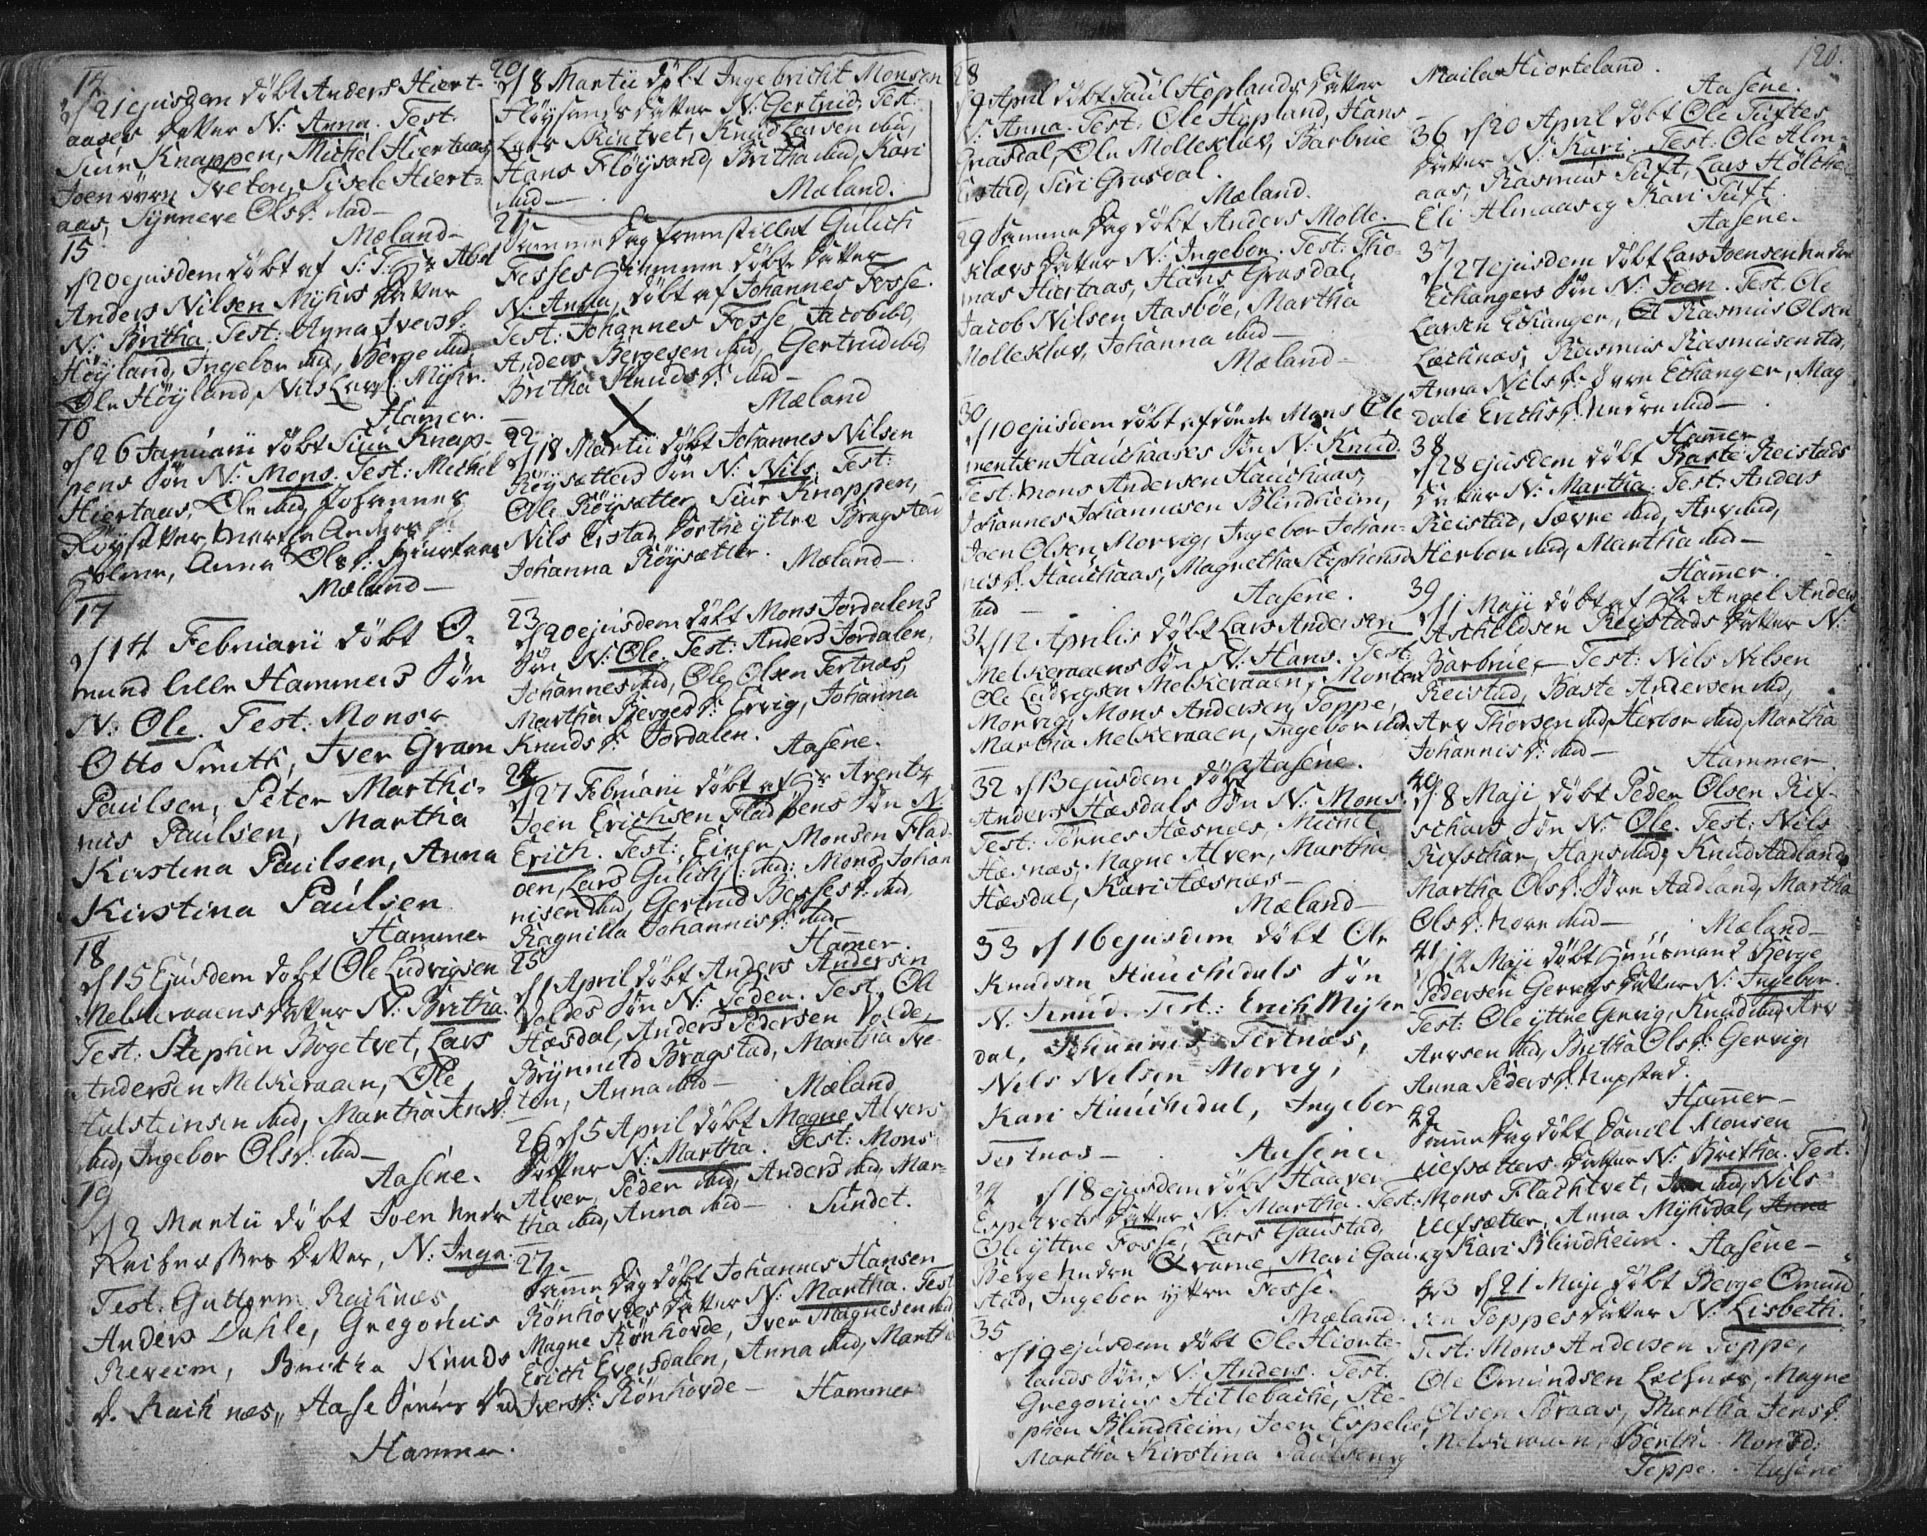 14
d 21 ejusdem døbt Anders Hiert-
aases Datter N: Anna. Test:
Siur Knappen, Michel Hiertaas,
Joen øvre Tveten, Sisele Hiert-
aas, Synneve Olsd: ibid—
Mæland—
15
d 20 ejusdem døbt af S: T: Hr Abel
Anders Nilsen Myhrs Datter
N: Britha. Test: Anna Iversd:
Høyland, Ingebor ibid, Berge ibid,
Ole Høyland, Nils Lars: Myhr.
Hamer.
16
d 26 Januarii døbt Siur Knap-
pens Søn N: Mons. Test: Michel
Hiertaas, Ole ibid, Johannes
Røysetter, Anders
Anna Olsd: Hiertaas
Mæland—
17
d 14 Februarii døbt O-
mund lille Hammers Søn
N: Ole. Test: Monsr
Otto Smith, Iver Gram
Paulsen, Peter Marthi-
nus Paulsen, Martha
Kirstina Paulsen, Anna
Kirstina Paulsen
Hammer
18
d 15 Ejusdem døbt Ole Ludvigsen
Melkeraaens Datter N: Britha.
Test: Stephen Bogetvet, Lars
Andersen Melkeraaen, Ole
Halsteinsen ibid, Martha Jensd:
ibid, Ingebor Olsd: ibid—
Aasene.
19
d 2 Martii døbt Joen nedre
Raknesses Datter, N: Inga.
Test: Guttorm Raknæs
Anders Dahle, Gregorius
Reveim, Britha Knuds
d. Raknæs, Aase
Hammer.
20
d 8 Martii døbt Ingebricht Monsen
Fløysands Datter N: Gertrud. Test:
Lars Rintvet, Knud Larsen ibid,
Hans Fløysand, Britha ibid, Kari
ibid—
Mæland.
21
Samme Dag fremstillet Gulich
Fosses hiemme døbte Datter
N: Anna, døbt af Johannes Fosse.
Test: Johannes Fosse, Jacob ibd,
Anders Bergesen ibid, Gertrud ibd,
Britha Knudsd: ibid—
Mæland
22
d 18 Martii døbt Johannes Nilsen
Røysætters Søn N: Nils. Test:
Ole Røysætter, Siur Knappen,
Nils Eistad, Dorthe yttre Bragstad
Johanna Røysætter. Mæland—
23
d 20 ejusdem døbt Mons Jordalens
Søn N: Ole. Test: Anders Jordalen,
Johannes ibid, Ole Olsen Tertnæs,
Martha Bergesd: Ervig, Johanna
Knudsd: Jordalen. Aasene.
24
d 27 Februarii døbt af Hr Arentz
Joen Erichsen Fladøens Søn N:
Erich. Test: Einer Monsen Flad-
øen, Lars Gulichs: ibid, Mons Johan-
nisen ibid, Gertrud Bessesd: ibid,
Ragnilla Johannisd: ibid—
Hamer.
25
d 1 April døbt Anders Andersen
Voldes Søn N: Peder. Test: Ole
Hæsdal, Anders Pedersen Volde,
Brynnild Bragstad, Martha Tve-
ten, Anna ibid— Mæland
26 d 5 April døbt Magne Alvers
Datter N: Martha. Test: Mons
Alver, Peder ibid, Anders ibid, Mar-
tha ibid, Anna ibid— Sundet.
27
Samme Dag døbt Johannes Hansen
Rønhovdes Datter N: Martha. Test:
Magne Rønhovde, Iver Magnesen ibid,
Erich Eversdalen, Anna ibid, Martha
Iversd: Rønhovde— Hammer
28
d 9 April døbt Paul Hoplands Datter
N: Anna. Test: Ole Hopland, Hans
Grasdal, Ole Molleklæv, Barbrue
Eistad, Siri Grasdal.
Mæland.
29 Samme Dag døbt Anders Molle-
klævs Datter N: Ingebor. Test: Tho-
mas Hiertaas, Hans Grasdal,
Jacob Nilsen Aasbøe, Martha
Molleklæv, Johanna ibid—
Mæland—
30
d 10 ejusdem døbt Mons Cle-
mentsen Hauchaases Søn N: Knud.
Test: Mons Andersen Hauchaas,
Johannes Johannesen Blindheim,
Joen Olsen Morvig, Ingebor Johan-
nisd: Hauchaas, Magnetha Stephensd:
ibid— Aasene.
31 d 12 Aprilis døbt Lars Andersen
Melkeraaens Søn N: Hans. Test:
Ole Ludvigsen Melkeraaen, Morten
Morvig, Mons Andersen Toppe,
Martha Melkeraaen, Ingebor ibid.
Aasene.
32 d 13 ejusdem døbt
Anders Hæsdals Søn N: Mons.
Test: Tørnes Hæsnæs, Michel
Hæsnæs, Magne Alver, Martha
Hæsdal, Kari Hæsnæs—
Mæland—
33 d 16 ejusdem døbt Ole
Knudsen Hauchedals Søn
N: Knud. Test: Erich Myhr
dal, Johannes Tertnæs,
Nels Nelsen Morvig,
Kari Hauchedal, Ingebor
Tertnæs— Aasene
34 d 18 ejusdem døbt Haaver
Espetvets Datter N: Martha. Test:
Ole yttre Fosse, Lars Gaustad,
Berge nedre Qvame, Mari Gau-
stad, Ingebor yttre Fosse.
Mæland.
35
d 19 ejusdem døbt Ole Hiorte-
lands Søn N: Anders. Test:
Gregorius Hitlebache, Ste-
phen Blindheim, Joen Espelie,
Martha Kirstina Paulsen og
Maila Hiorteland.
Aasene.
120.
36 d 20 April døbt Ole Tuftes
Datter N: Kari. Test: Ole Alm-
aas, Rasmus Tuft, Lars Holthe,
Eli Almaas og Kari Tuft.
Aasene.
37
d 27 ejusdem døbt Lars Joensen nedre
Echangers Søn N: Joen. Test: Ole
Larsen Echanger, Rasmus Olsen
Lechnæs, Rasmus Rasmusen ibd,
Anna Nilsd: øvre Echanger, Mag-
dale Erichsd: nedre ibid—
Hamer
38
d 28 ejusdem døbt Baste Reistads
Datter N: Martha. Test: Anders
Reistad, Sævre ibid, Arv ibid,
Herbor ibid, Martha ibid—
Hamer.
39
d 1 Maji døbt af Hr Angel Anders
Askildsen Reistads Datter N:
Barbrue. Test: Nils Nilsen
Reistad, Baste Andersen ibd,
Arv Thorsen ibid, Herbor ibid, Martha
Johannisd: ibid— Hammer
40
d 8 Maji døbt Peder Olsen Rif-
schars Søn N: Ole. Test: Nils
Rifschar, Hans ibid, Knud Aadland,
Martha Olsd: Søre Aadland, Martha
Olsd: Nore ibid— Mæland—
41
d 12 Maji døbt Huusmand Berge
Pedersen Gervigs Datter N: Ingebor.
Test: Ole yttre Gervig, Knud ibid, Arv
Arvsen ibid, Britha Olsd: Gervig,
Anna Pedersd: Hopstad.
Hamer—
42
Samme Dag døbt Daniel Monsen
Ulfsætters Datter N: Britha. Test:
Mons Flachtvet, ibid, Nils
Ulfsætter, Anna Myhrdal, Anna
og Kari Blindheim. Aasene—
43 d 21 Maji døbt Berge Omund
sen Toppes Datter N: Lisbeth.
Test: Mons Andersen Toppe,
Ole Omundsen Lechnæs, Magne
Olsen Søraas, Martha Jensd:
Melkeraaen, Berthe Monsd:
Toppe. Aasene